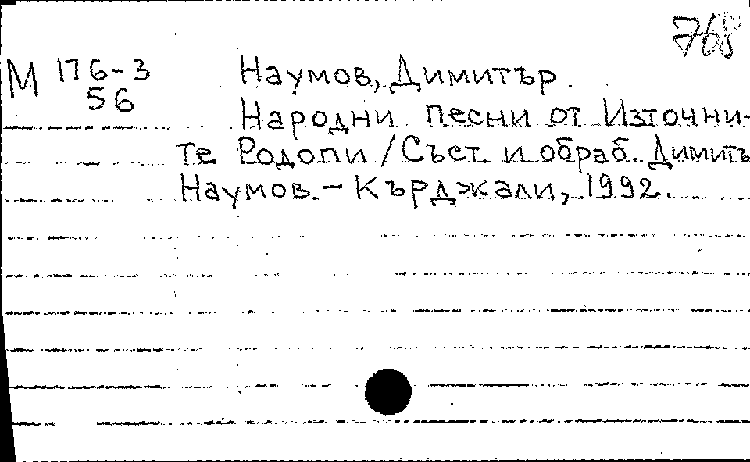 768
М 176-3 Наумов, Димитър.
56
Народни песни от Източни-
те Родопи / Съст. и обраб. Димитъ
Наумов. - Кърджали, 1992.